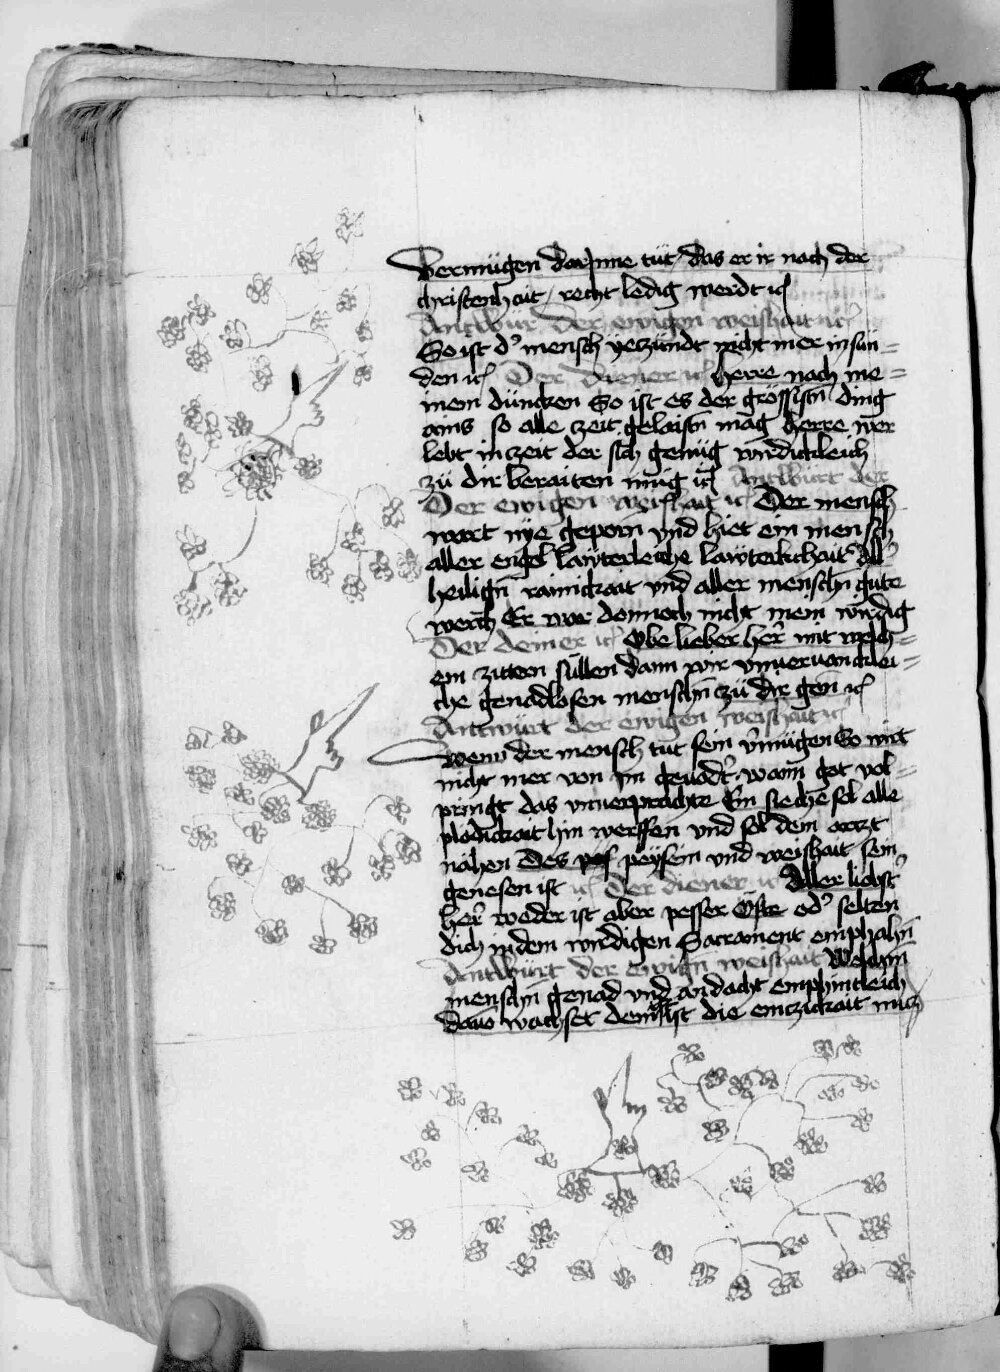 vermügen dar Inne tüt / das er ir nach der
christenhait / recht ledig werdt ꝛc
Antwür der ewigen weishait ꝛc
So ist dˀ mensch yeczundt nicht mer in sün =
den ꝛc Der diener ꝛc herre nach me =
inem düncken So ist es der grössistn̄ ding
ains so alle zeit gelaistn̄ mag herre wer
lebt in zeit der sich genüg wirdickleich
zü dir beraiten müg ꝛc Antwürt der
Der ewigen weishait ꝛc Der mensch
wart nye geporn vnd hiet ein mensch
aller engel lawterleiche lawterkchait Allˀ
heilign̄ rainickait vnd aller menschn̄ gute
werch Er wär dennoch nicht mein wirdig
Der deiner ꝛc Owe lieber her̄ mit welch =
em zittern süllen dann wir
che genadlosen menschn̄ zü dir gen ꝛc
Antwürt der ewigen weishait ꝛc
Wenn der mensch tut sein vˀmügen So wirt
nicht mer von im geuodˀt wann got vol =
pringt das vnuerprachte Ein siecher sol alle
plödickait hin werffen vnd sol dem arczt
nahen Des peysein vnd weishait sein
genesen ist ꝛc Der diener ꝛc Aller liebstˀ
her̄ weder ist aber pesser Offte odˀ selten
dich in dem wirdigen Sacrament emphahn̄
Antwürt der ewign̄ weishait Welchm̄
menschn̄ genad vnd andacht emphintleich
dauo wachset dem ist die emczickait nucz